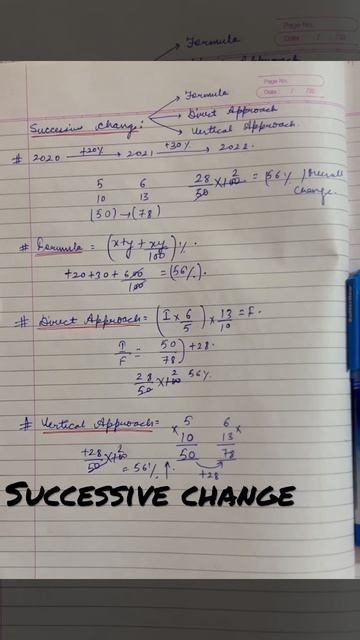 Formula
Page No.
Date: / /20
Page No.
Date: / /20
Formula
Successive change:
Direct Approach
Vertical Approach.
# 2020 +20% → 2021 +30% → 2022.
5 6
10 13
(50) → (78)
28/50 × 100 2 = (56% / Overall
Change.
# Formula = (x+y + xy/100) %.
+20+30+600/100 = (56%).
# Direct Approach = (I × 6/5) × 13/10 = F.
I/F = 50/78) +28.
28/50 × 100 2 56%
# Vertical Approach =
× 5 6 ×
10 13
50 78
+28
+28/50 × 100 2
= 56% ↑.
SUCCESSIVE CHANGE